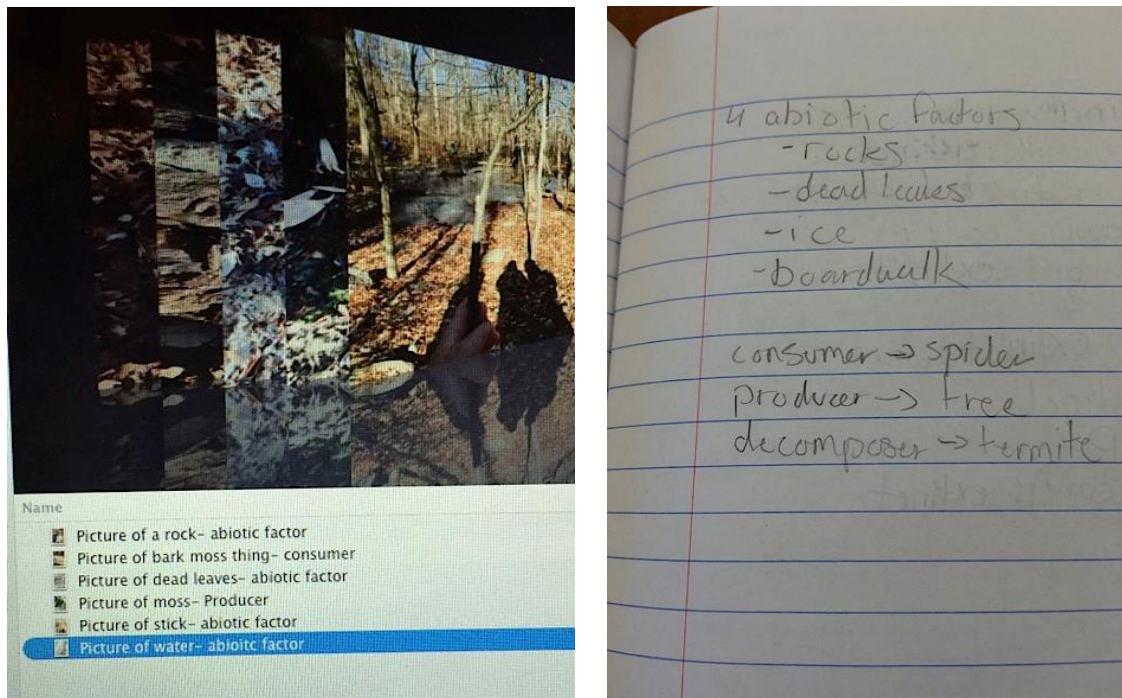 Name
Picture of a rock- abiotic factor
Picture of bark moss thing- consumer
Picture of dead leaves- abiotic factor
Picture of moss- Producer
Picture of stick- abiotic factor
Picture of water- abioitc factor
4 abiotic factors
-rocks
-dead leaves
-ice
-boardwalk
consumer → spider
producer → tree
decomposer → termite